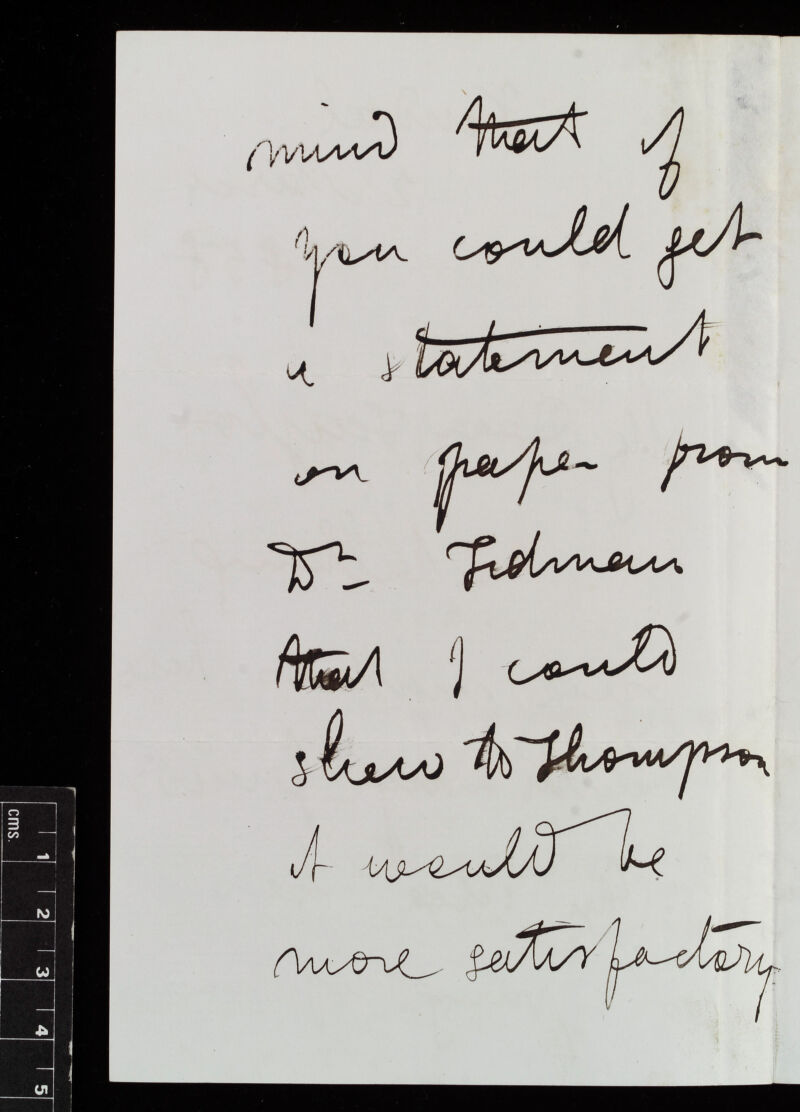 mind that if
you could get
a statement
on paper from
Dr Tidman
that I could
shew to Thompson
it would be
more satisfactory
cms.
1
2
3
4
5